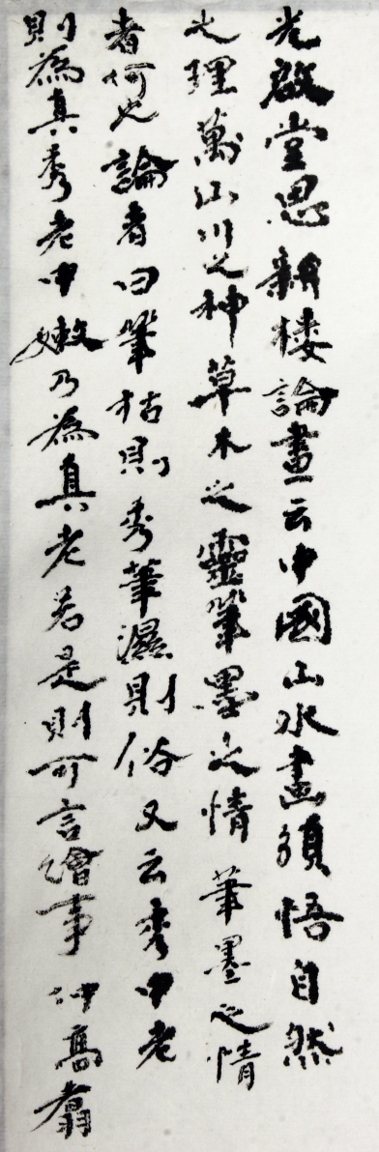 光啟堂思翁楼論畫云中國山水畫須悟自然
之理萬山川之神草木之靈筆墨之情筆墨之情
者何也論者曰筆枯則秀筆濕則俗又云秀中老
則為真秀老中嫩乃為真老若是則可言繪事仲高翥